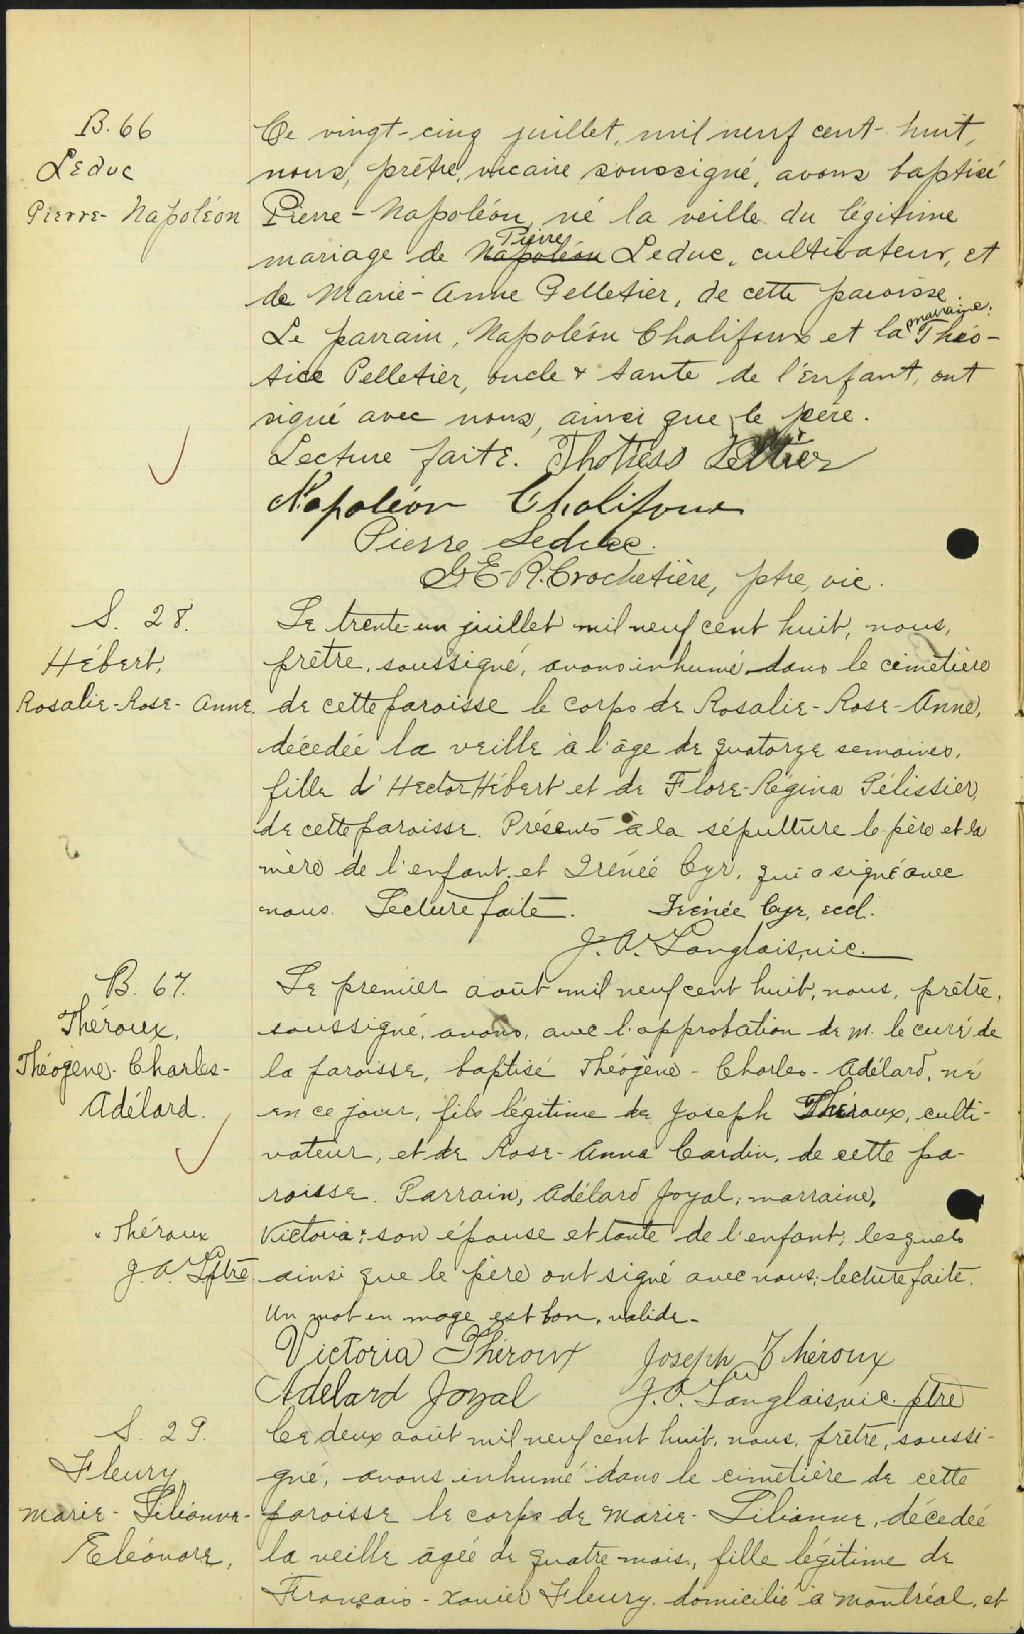 B. 66
Leduc
Pierre-Napoléon
Ce vingt-cinq juillet, mil neuf cent huit,
nous, prêtre, vicaire soussigné, avons baptisé
Pierre-Napoléon, né la veille du légitime
Pierre
mariage de Napoléon Leduc, cultivateur, et
de Marie-Anne Pelletier, de cette paroisse.
marraine:
Le parrain, Napoléon Chalifoux et la Théo-
tice Pelletier, oncle & tante de l'enfant, ont
signé avec nous, ainsi que le père.
Lecture faite.
Napoléon Chalifoux
Pierre Leduc.
G.E.R. Crochetière, ptre, vic.
S. 28.
Hébert,
Rosalie-Rose-Anne.
Le trente-un juillet mil neuf cent huit, nous,
prêtre, soussigné, avons inhumé dans le cimetière
de cette paroisse le corps de Rosalie-Rose-Anne,
décédée la veille à l'âge de quatorze semaines,
fille d'Hector Hébert et de Flore-Régina Pélissier,
de cette paroisse. Présents à la sépulture le père et la
mère de l'enfant et Irénée Cyr, qui a signé avec
nous. Lecture faite. Irénée Cyr, eccl.
J. A. Langlais, vic.
B. 67.
Théroux,
Théogène-Charles-
Adélard.
Le premier août mil neuf cent huit, nous, prêtre,
soussigné, avons, avec l'approbation de M. le curé de
la paroisse, baptisé Théogène-Charles-Adélard, né
en ce jour, fils légitime de Joseph Théroux, culti-
vateur, et de Rose-Anna Cardin, de cette pa-
roisse. Parrain, Adélard Joyal; marraine,
Théroux
J. A. L ptre
Victoria * son épouse et tante de l'enfant; lesquels
ainsi que le père ont signé avec nous; lecture faite.
Un mot en mage est bon, valide.
Victoria Théroux Joseph Théroux
Adélard Joyal J. A. Langlais, vic. ptre
S. 29.
Fleury
Marie-Lilianne-
Eléonore,
Ce deux août mil neuf cent huit, nous, prêtre, soussi-
gné, avons inhumé dans le cimetière de cette
paroisse le corps de Marie-Lilianne, décédée
la veille âgée de quatre mois, fille légitime de
François-Xavier Fleury, domicilié à Montréal, et